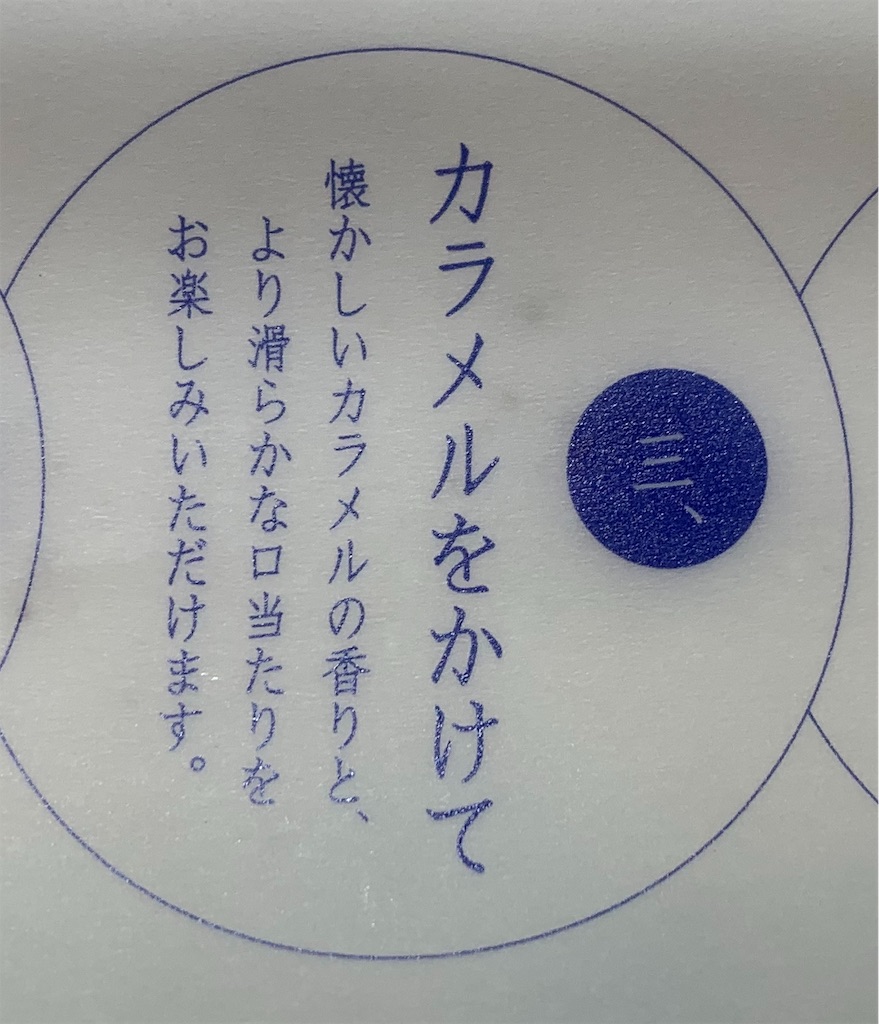 三、
カラメルをかけて
懐かしいカラメルの香りと、
より滑らかな口当たりを
お楽しみいただけます。